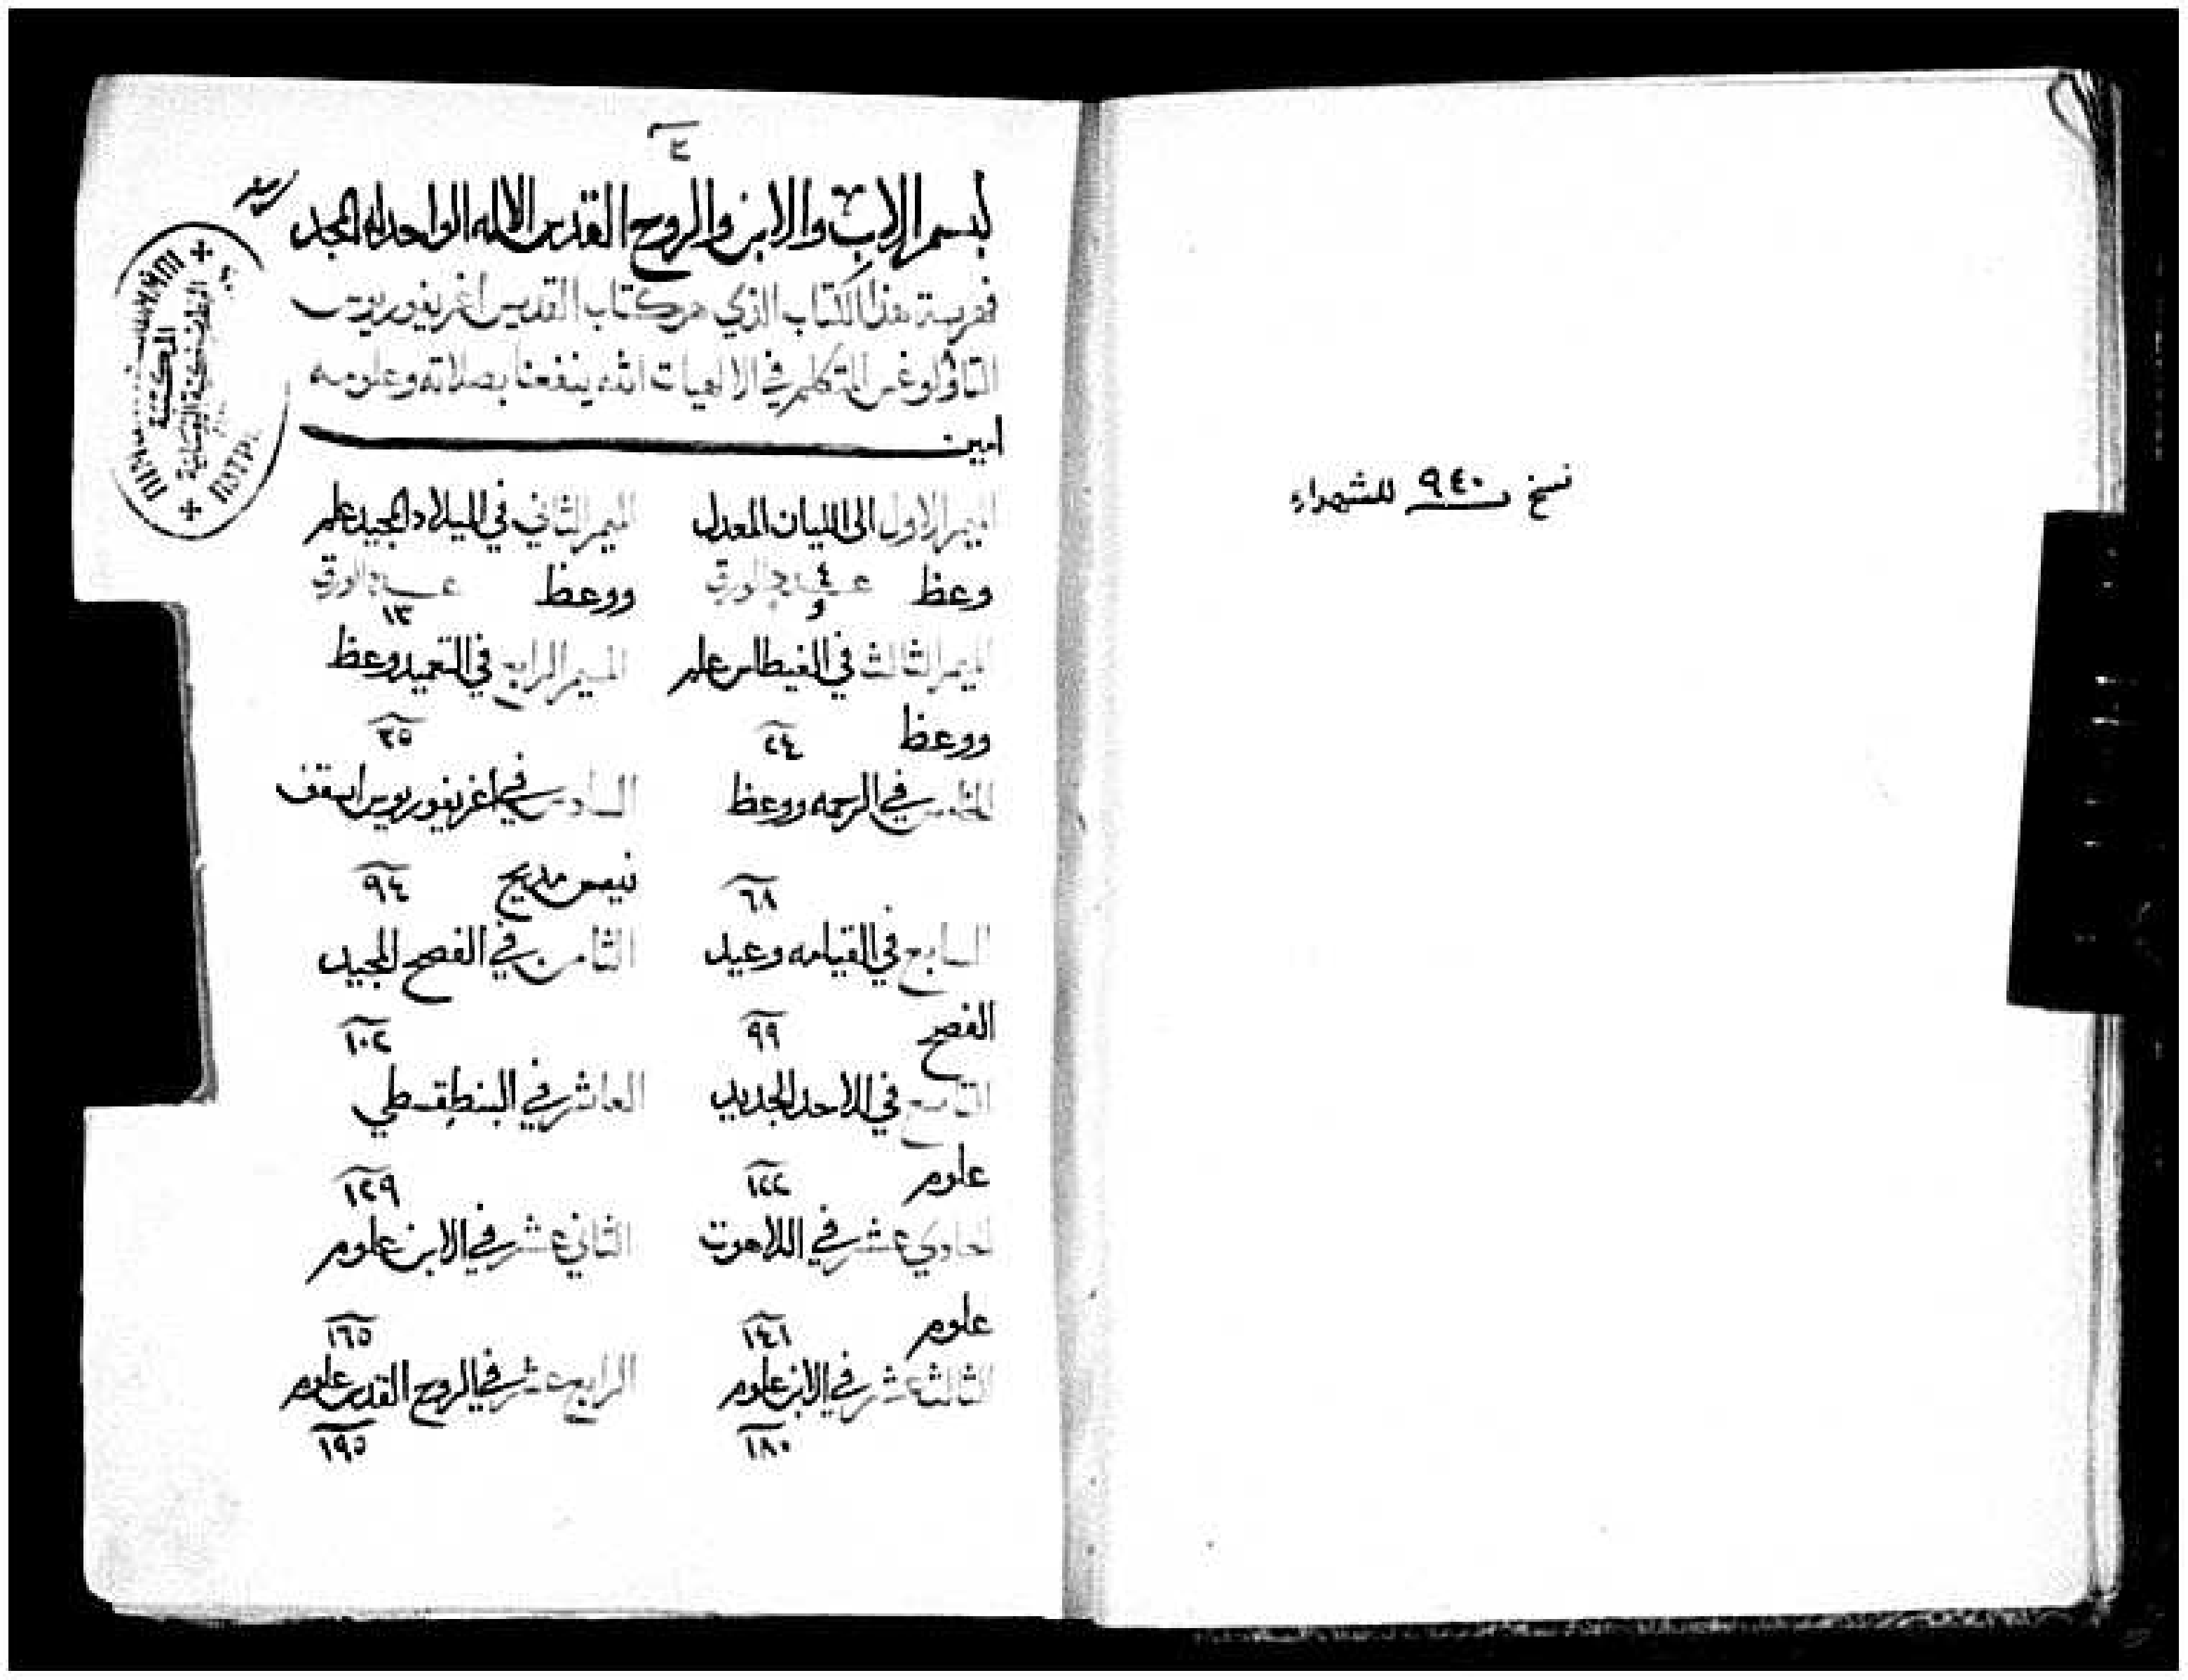 نسخ سنة ٩٤٠ للشهداء
٢
بسم الاب والابن والروح القدس الاله الواحد له المجد
فهرسة هذا الكتاب الذي هو كتاب القديس اغريغوريوس
الثاؤلوغس المتكلم في الالهيات الله ينفعنا بصلاته وعلومه
امين
الميمر الاول الى الليان المعدل
وعظ
٤
الميمر الثاني في الميلاد المجيد علم
ووعظ
١٣
الميمر الثالث في الغيطاس علم
ووعظ ٢٤
الميمر الرابع في التعميد وعظ
٣٥
الخامس في الرحمه ووعظ
٦٨
السادس في اغريغوريوس اسقف
نيصص مديح ٩٤
السابع في القيامه وعيد
الفصح ٩٩
الثامن في الفصح المجيد
١٠٢
التاسع في الاحد الجديد
علوم ١٢٢
العاشر في البنطقسطي
١٢٩
الحادي عشر في اللاهوت
علوم ١٤١
الثاني عشر في الابن علوم
١٦٥
الثالث عشر في الابن علوم
١٨٠
الرابع عشر في الروح القدس علوم
١٩٥
المكتبة